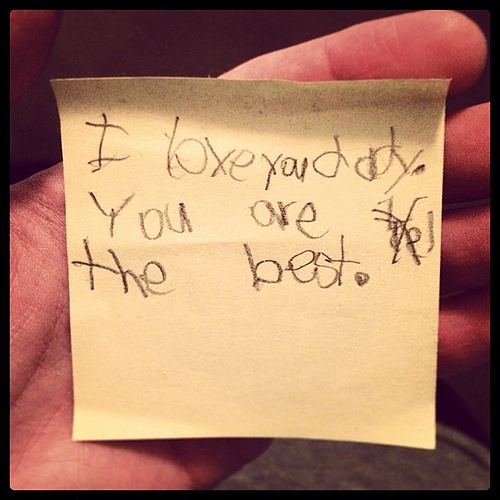 I love you dady.
You are
the best.